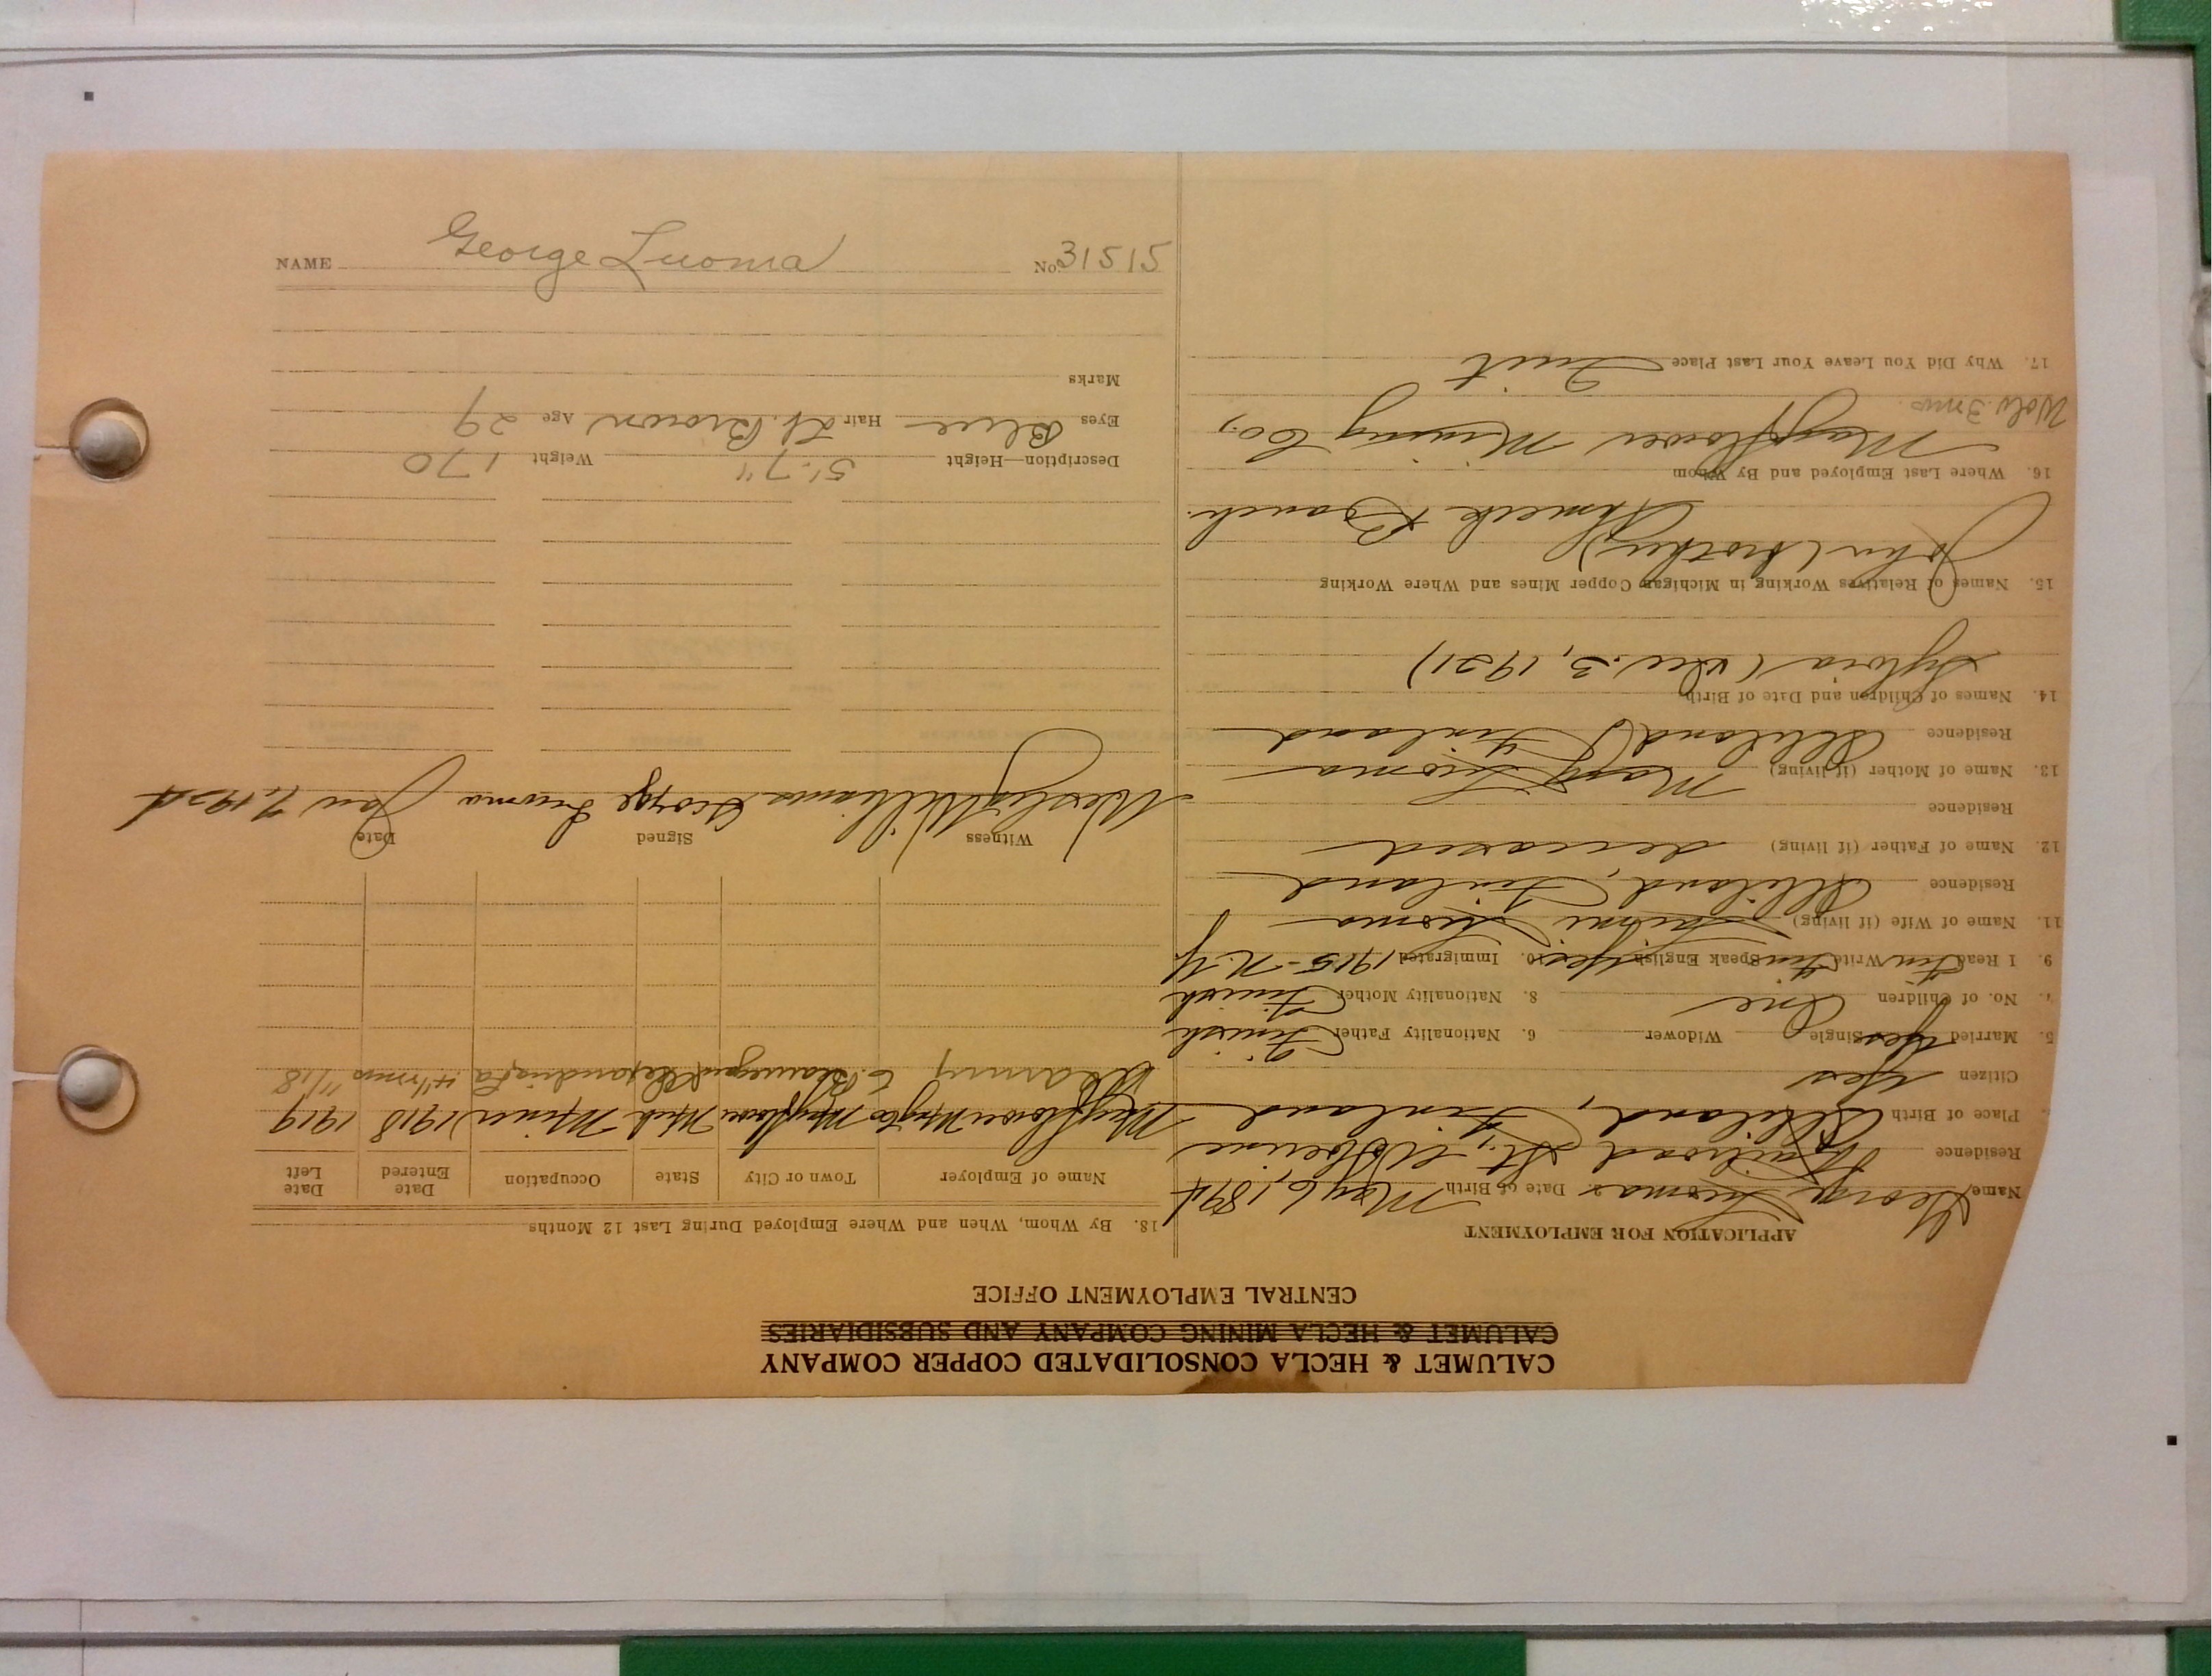 CALUMET & HECLA CONSOLIDATED COPPER COMPANY
CALUMET & HECLA MINING COMPANY AND SUBSIDIARIES
CENTRAL EMPLOYMENT OFFICE
APPLICATION FOR EMPLOYMENT
Name George Luoma 2. Date of Birth May 6, 1894
Residence Railroad St., Wolverine
Place of Birth Finland
Citizen Yes
5. Married Yes Single Widower 6. Nationality Father Finish
7. No. of Children One 8. Nationality Mother Finish
9. I Read Fin Write Fin Speak English Yes 10. Immigrated 1915 - N.Y.
11. Name of Wife (if living) Luoma
Residence Finland
12. Name of Father (if living) deceased
Residence
13. Name of Mother (if living) Mary Luoma
Residence Finland
14. Names of Children and Date of Birth
Sylvia (Dec. 3, 1921)
15. Names of Relatives Working in Michigan Copper Mines and Where Working
John (brother) Ahmeek Branch.
16. Where Last Employed and By Whom
Mayflower Mining Co.,
Wolv. 3 mos.
17. Why Did You Leave Your Last Place Quit
18. By Whom, When and Where Employed During Last 12 Months
Name of Employer Town or City State Occupation Date Entered Date Left
Mayflower Mng Co Mayflower Mich Miner 1918 1919
U.S. Army 11/18
Witness Signed Date
Wesley Williams George Luoma Jan 7, 1924
Description—Height 5'-7" Weight 170
Eyes Blue Hair Lt. Brown Age 29
Marks
NAME George Luoma No. 31515